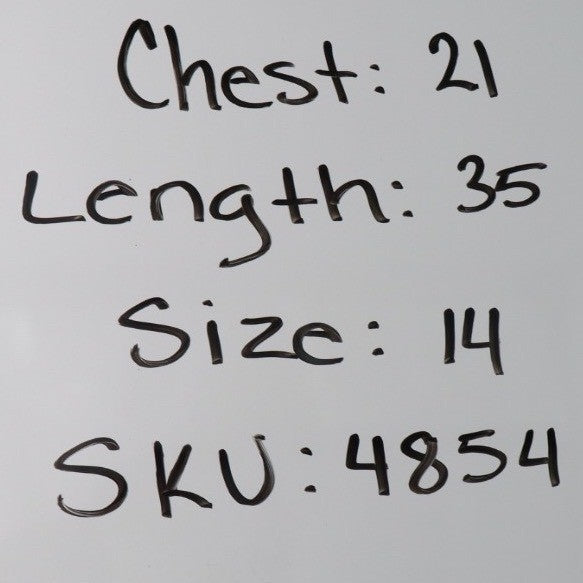 Chest: 21
Length: 35
Size: 14
SKU: 4854